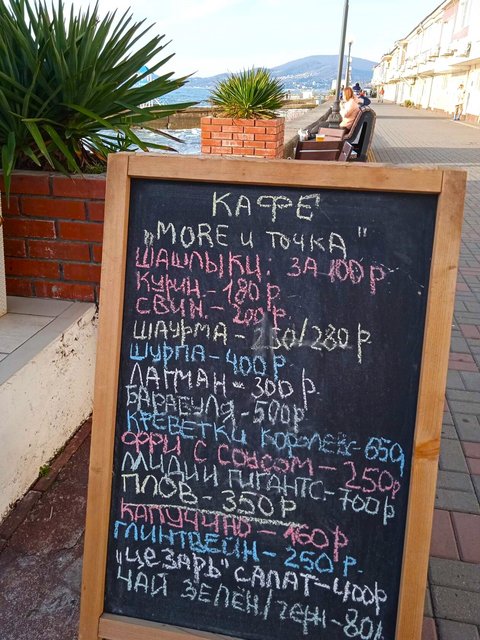 КАФЕ
„MORE и ТОЧКА"
ШАШЛЫКИ: ЗА 100 р
КУРИН - 180 р.
СВИН - 200 р.
ШАУРМА - 250/280 р
ШУРПА - 400 р.
ЛАГМАН - 300 р.
БАРАБУЛЯ - 500р
КРЕВЕТКИ КОРОЛЕВС - 650р
ФРИ С СОУСОМ - 250р
МИДИИ ГИГАНТС - 700р
ПЛОВ - 350 Р
КАПУЧЧНО - 160р
ГЛИНТВЕЙН - 250р.
„ЦЕЗАРЬ" САЛАТ - 400р
ЧАЙ ЗЕЛЁН/ЧЕРН - 80р